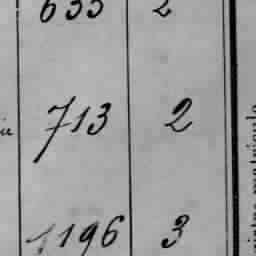 633 2
713 2
1196 3